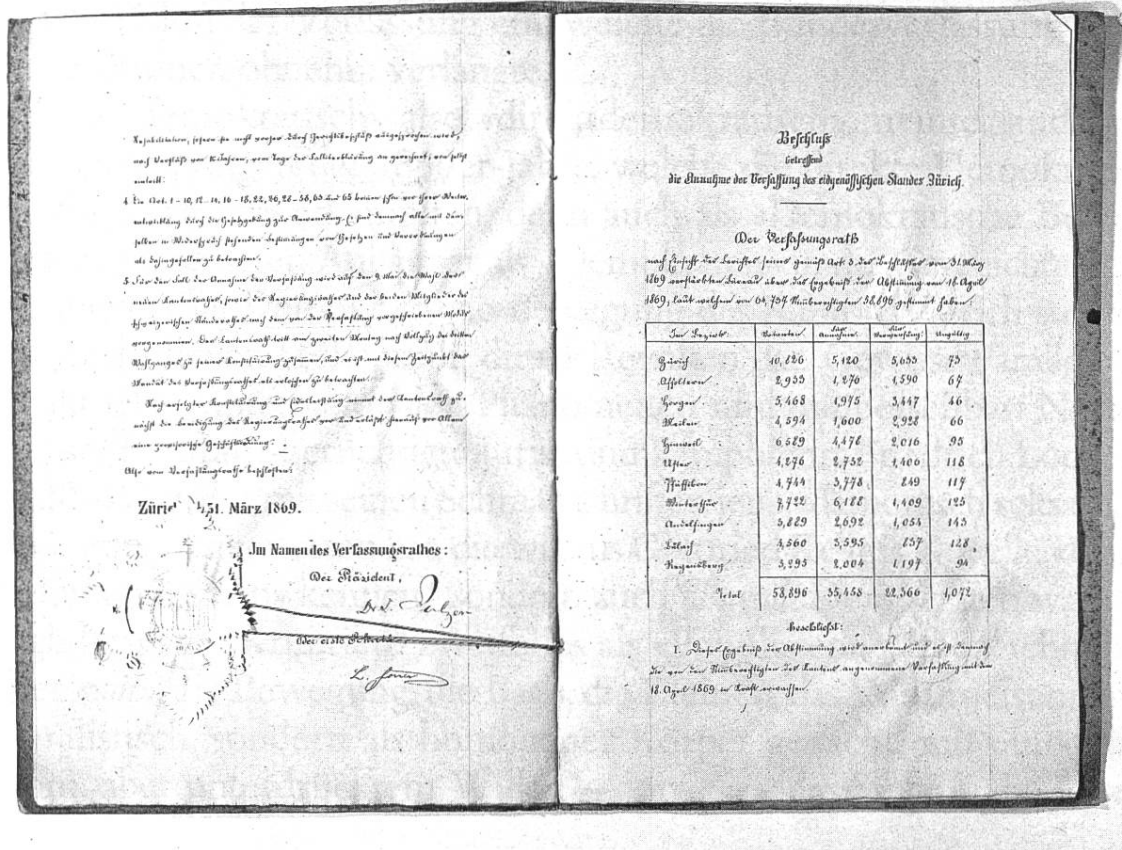 Rehabilitation, sofern sie nicht vorher durch Gerichtsbeschluß ausgesprochen wird,
nach Verfluß von 10 Jahren, vom Tage der Falliterklärung an gerechnet, von selbst
eintritt.
4. Die Art. 1-10, 12-14, 16-18, 22, 26, 28-58, 63 und 65 kommen schon vor ihrer Weiter-
entwicklung durch die Gesetzgebung zur Anwendung. Es sind demnach alle mit den-
selben in Widerspruch stehenden Bestimmungen von Gesetzen und Verordnungen
als dahingefallen zu betrachten.
5. Für den Fall der Annahme der Verfassung wird auf den 9. Mai die Wahl des
neuen Kantonsrathes, sowie des Regierungsrathes und der beiden Mitglieder des
schweizerischen Ständerathes nach dem von der Verfassung vorgeschriebenen Modus
vorgenommen. Der Kantonsrath tritt am zweiten Montag nach Vollzug des dritten
Wahlganges zu seiner Konstituirung zusammen, und es ist mit diesem Zeitpunkt das
Mandat des Verfassungsrathes als erloschen zu betrachten.
Nach erfolgter Konstituirung und Eidesleistung nimmt der Kantonsrath zu-
nächst die Beeidigung des Regierungsrathes vor und erläßt hierauf vor Allem
eine provisorische Geschäftsordnung.
Also vom Verfassungsrathe beschlossen:
31. März 1869.
Im Namen des Verfassungsrathes:
Der Präsident,
Der erste
L. Forrer
Beschluß
betreffend
die Annahme der Verfassung des eidgenössischen Standes Zürich.
Der Verfassungsrath
nach Einsicht des Berichtes seines gemäß Art. 3 des Beschlusses vom 31. März
1869 verstärkten Bureau über das Ergebniß der Abstimmung vom 18. April
1869, laut welchem von 64,737 Stimmberechtigten 58,896 gestimmt haben:
Im Bezirk Votanten. für Annahme. für Verwerfung. Ungültig
Zürich 10,826 5,120 5,633 73
Affoltern 2,933 1,276 1,590 67
Horgen 5,468 1,975 3,447 46
Meilen 4,594 1,600 2,928 66
Hinweil 6,589 4,478 2,016 95
Uster 4,276 2,752 1,406 118
Pfäffikon 4,744 3,778 849 117
Winterthur 7,722 6,188 1,409 125
Andelfingen 3,889 2,692 1,054 143
Bülach 4,560 3,595 837 128
Regensberg 3,295 2,004 1,197 94
Total 58,896 35,458 22,366 1,072
beschließt:
I. Dieses Ergebniß der Abstimmung wird anerkannt und es ist demnach
die von den Stimmberechtigten des Kantons angenommene Verfassung mit dem
18. April 1869 in Kraft erwachsen.